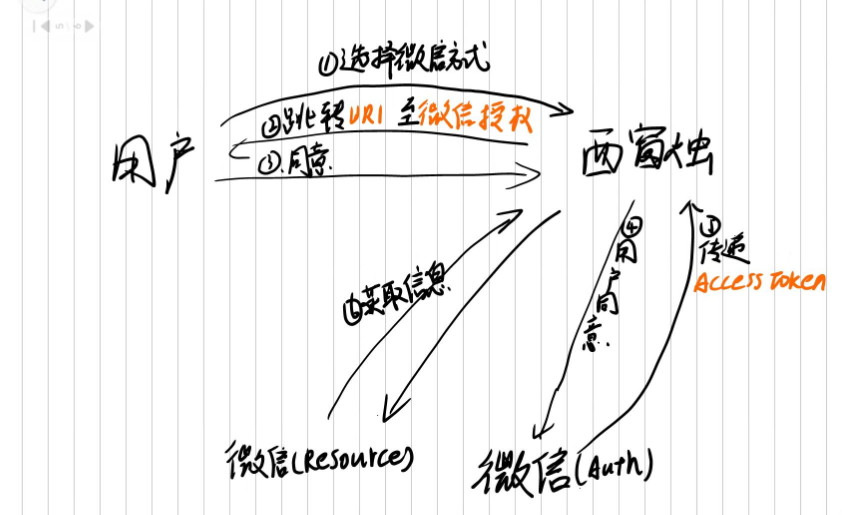 ①选择微信方式
②跳转URI 至微信授权
③.同意.
用户
西窗烛
④用户同意.
⑤传递
Access Token
⑥获取信息
微信(Resource)
微信(Auth)